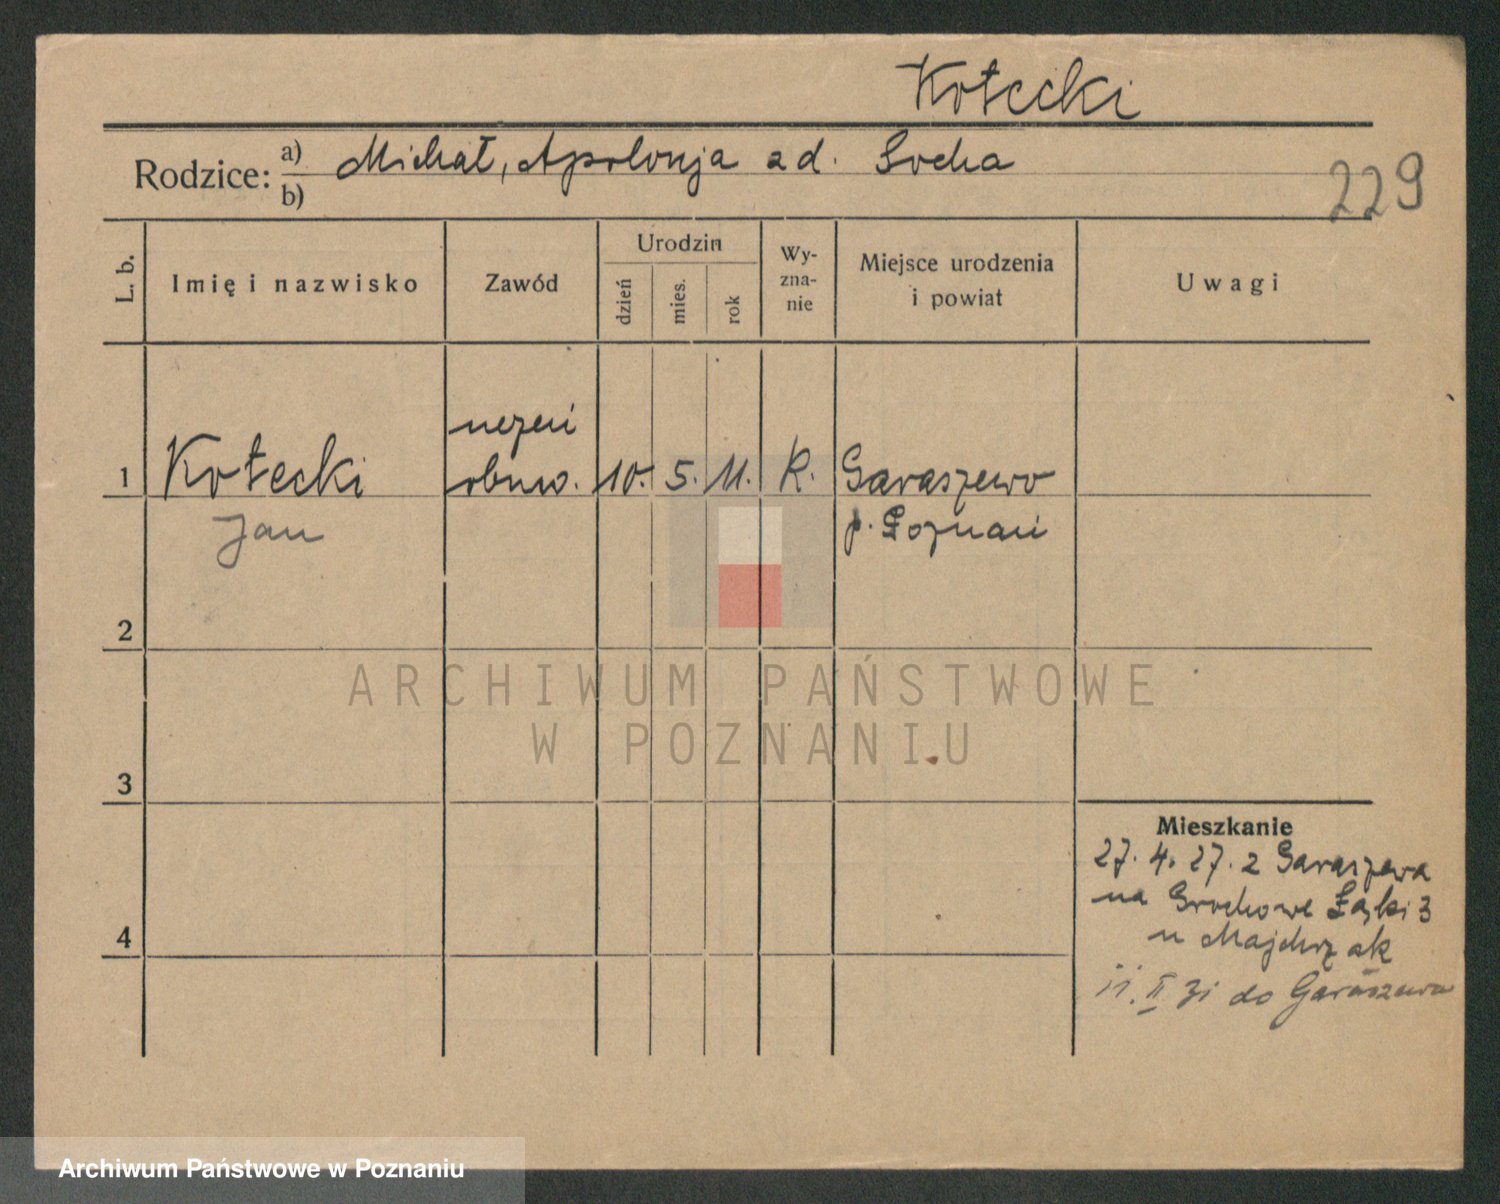 Kotecki
Rodzice: a) Michał, Apolonja z d. Socha
b)
229
L. b.
Imię i nazwisko
Zawód
Urodzin
dzień
mies.
rok
Wy-
zna-
nie
Miejsce urodzenia
i powiat
Uwagi
uczeń
1 Kotecki obuw. 10. 5. 11. R. Garaszewo
Jan p. Poznań
2
ARCHIWUM PAŃSTWOWE
W POZNANIU
3
Mieszkanie
27. 4. 27. z Garaszewa
na Grochowe Łąki 3
4
u Majchrzak
11. II 31 do Garaszewa
Archiwum Państwowe w Poznaniu